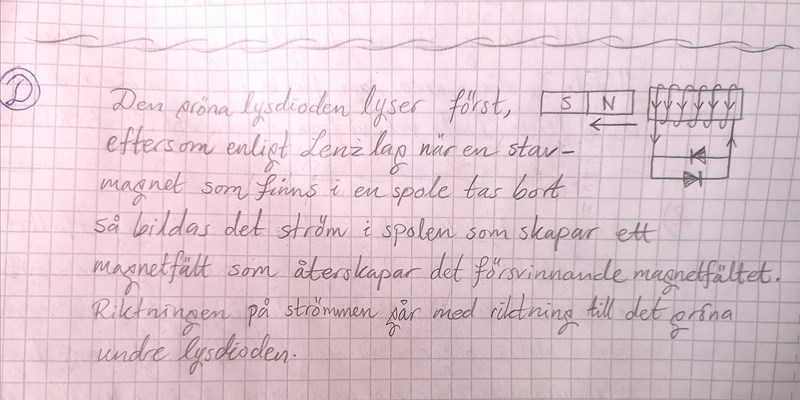 D
Den gröna lysdioden lyser först,
S N
eftersom enligt Lenz lag när en stav-
magnet som finns i en spole tas bort
så bildas det ström i spolen som skapar ett
magnetfält som återskapar det försvinnande magnetfältet.
Riktningen på strömmen går med riktning till det gröna
undre lysdioden.